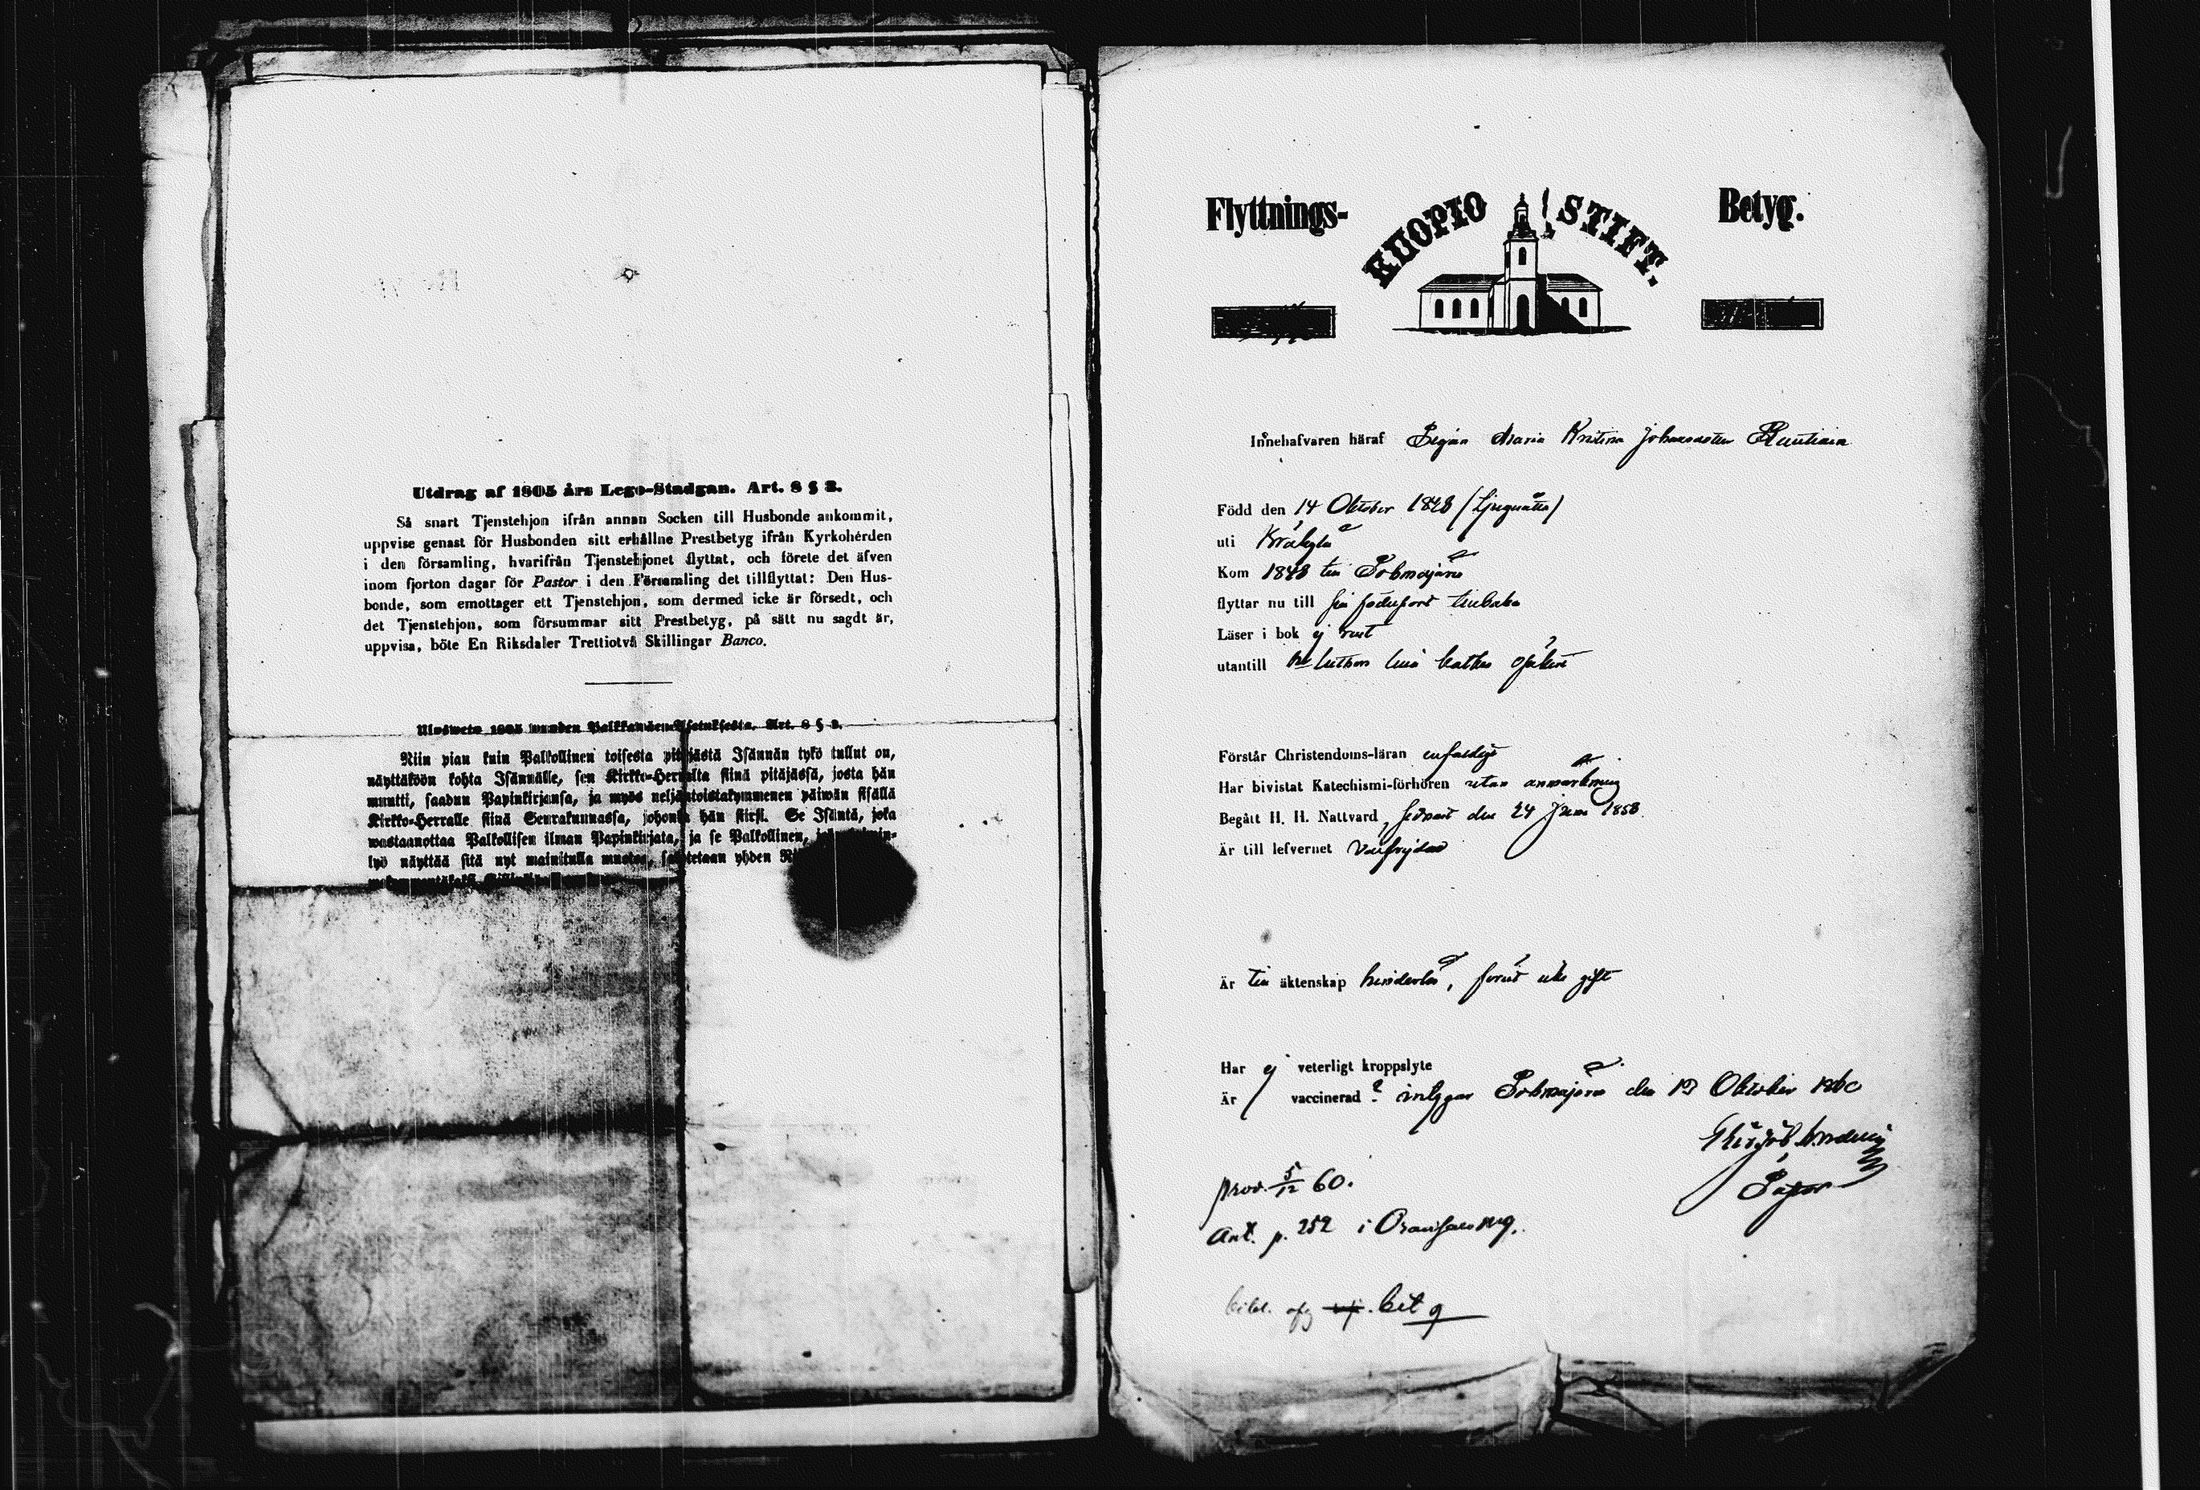 Utdrag af 1805 års Lego-Stadgan. Art. 8 § 2.
Så snart Tjenstehjon ifrån annan Socken till Husbonde ankommit,
uppvise genast för Husbonden sitt erhållne Prestbetyg ifrån Kyrkoherden
i den församling, hvarifrån Tjenstehjonet flyttat, och förete det äfven
inom fjorton dagar för Pastor i den Församling det tillflyttat: Den Hus-
bonde, som emottager ett Tjenstehjon, som dermed icke är försedt, och
det Tjenstehjon, som försummar sitt Prestbetyg, på sätt nu sagdt är,
uppvisa, böte En Riksdaler Trettiotvå Skillingar Banco.
Ulosweto 1805 wuoden Palkkawäen Asetuksesta. Art. 8 § 2.
Niin pian kuin Palkollinen toisesta pitäjästä Isännän tykö tullut on,
näyttäköön kohta Isännälle, sen Kirkko-Herralta siinä pitäjässä, josta hän
muutti, saadun Papinkirjansa, ja myös neljäntoistakymmenen päiwän sisällä
Kirkko-Herralle siinä Seurakunnassa, johonka hän siirsi. Se Isäntä, joka
wastaanottaa Palkollisen ilman Papinkirjata, ja se Palkollinen,
lyö näyttää sitä nyt mainitulla muotoa, sakotetaan yhden
Flyttnings- KUOPIO STIFT. Betyg.
Innehafvaren häraf Pigan Maria Kristina Johansdotter
Född den 14 Oktober 1843
uti
Kom 1848 till Polmajärvi
flyttar nu till sin födelseort tillbaka
Läser i bok ej rent
utantill
Förstår Christendoms-läran enfaldigt
Har bivistat Katechismi-förhören utan anmärkning
Begått H. H. Nattvard, senast den 24 Juni 1858.
Är till lefvernet välfrejdad
Är till äktenskap hinderlös, förut icke gift
Har ej veterligt kroppslyte
Är vaccinerad ? intygar Polmajärvi den Oktober 1860
Pastor
prod. 5/12 60.
Ant. p. 252 i
bit 9